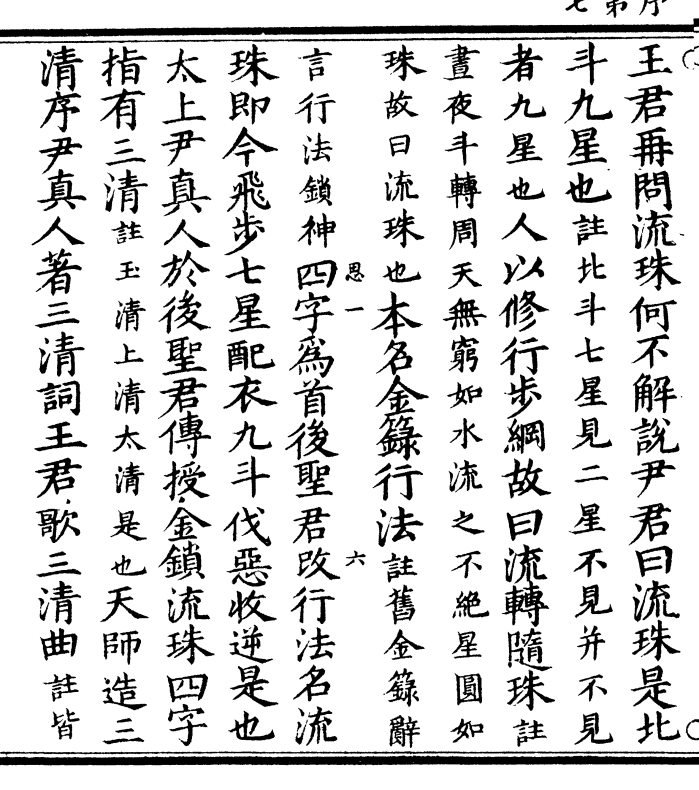 序第七
王君再問流珠何不解說尹君曰流珠是北
斗九星也註北斗七星見二星不見并不見
者九星也人以修行步綱故曰流轉隨珠註
晝夜斗轉周天無窮如水流之不絕星圓如
珠故曰流珠也本名金籙行法註舊金籙辭
恩一
六
言行法鎖神四字為首後聖君改行法名流
珠即今飛步七星配衣九斗伐惡收逆是也
太上尹真人於後聖君傳授金鎖流珠四字
指有三清註玉清上清太清是也天師造三
清序尹真人著三清詞王君歌三清曲註皆